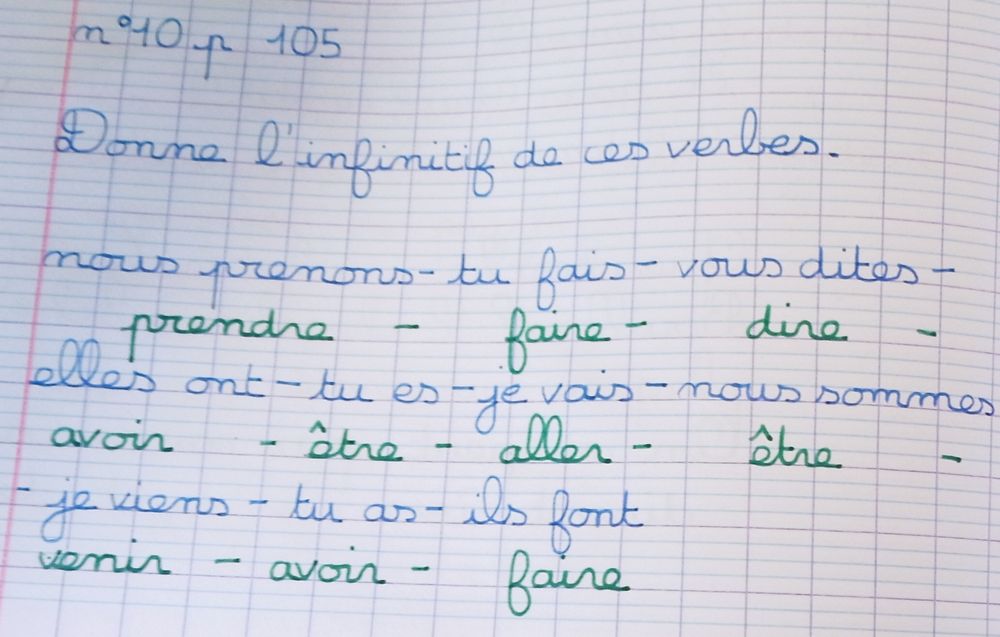 n°10 p 105
Donne l'infinitif de ces verbes.
nous prenons - tu fais - vous dites -
prendre - faire - dire -
elles ont - tu es - je vais - nous sommes
avoir - être - aller - être -
- je viens - tu as - ils font
venir - avoir - faire